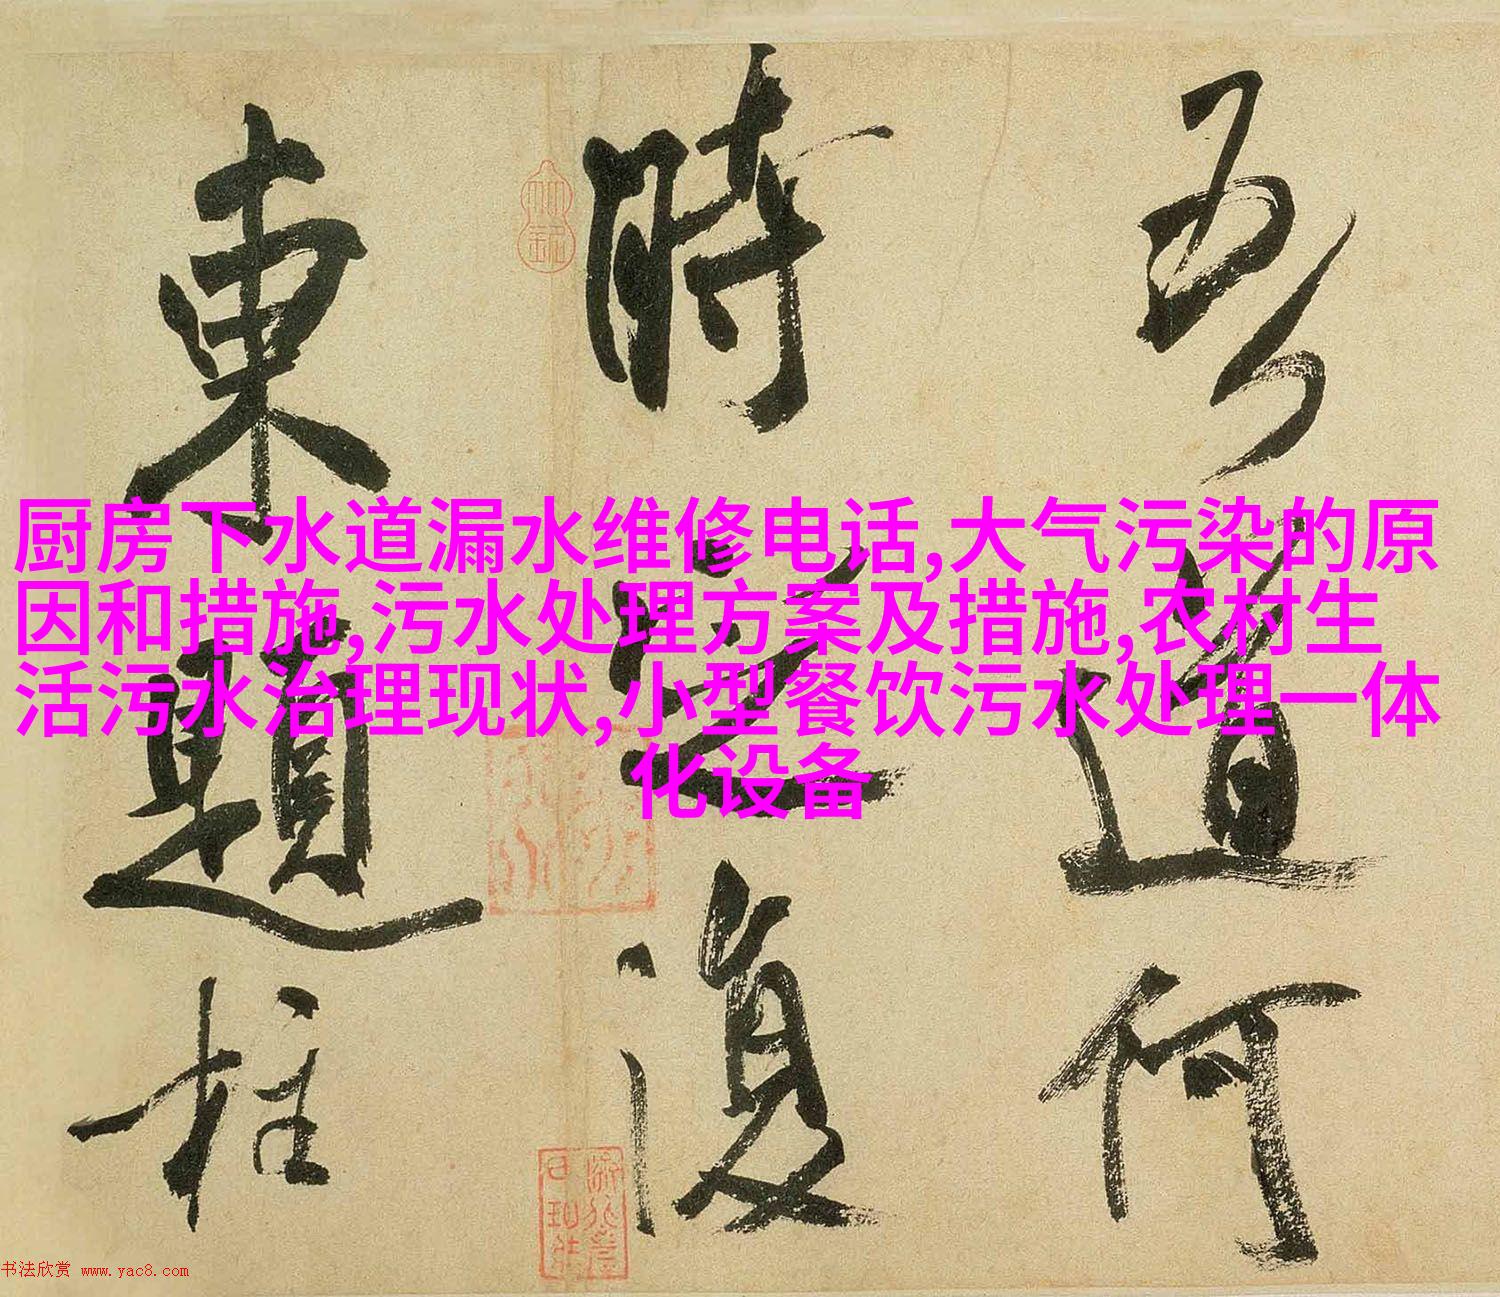 吾道何
時復
東題柱
厨房下水道漏水维修电话,大气污染的原
因和措施,污水处理方案及措施,农村生
活污水治理现状,小型餐饮污水处理一体
化设备
书法欣赏 www.yac8.com